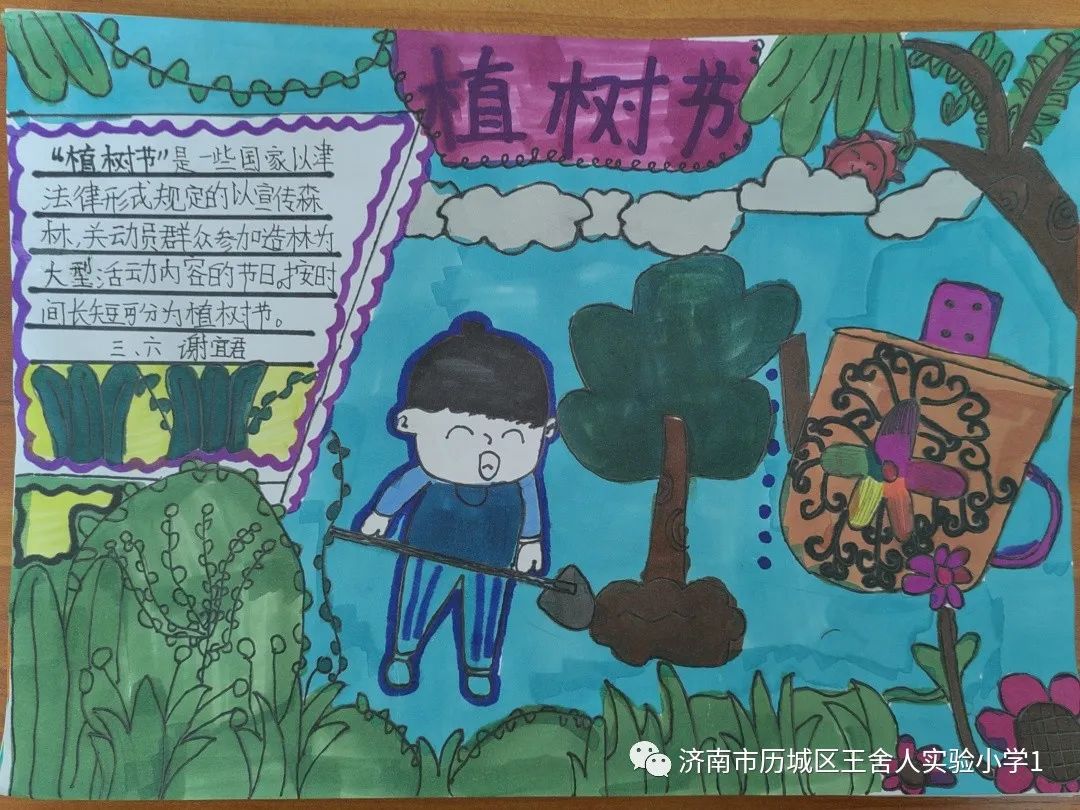 植树节
“植树节”是一些国家以津
法律形式规定的以宣传森
林,关动员群众参加造林为
大型活动内容的节日。按时
间长短可分为植树节。
三、六 谢宜君
济南市历城区王舍人实验小学1